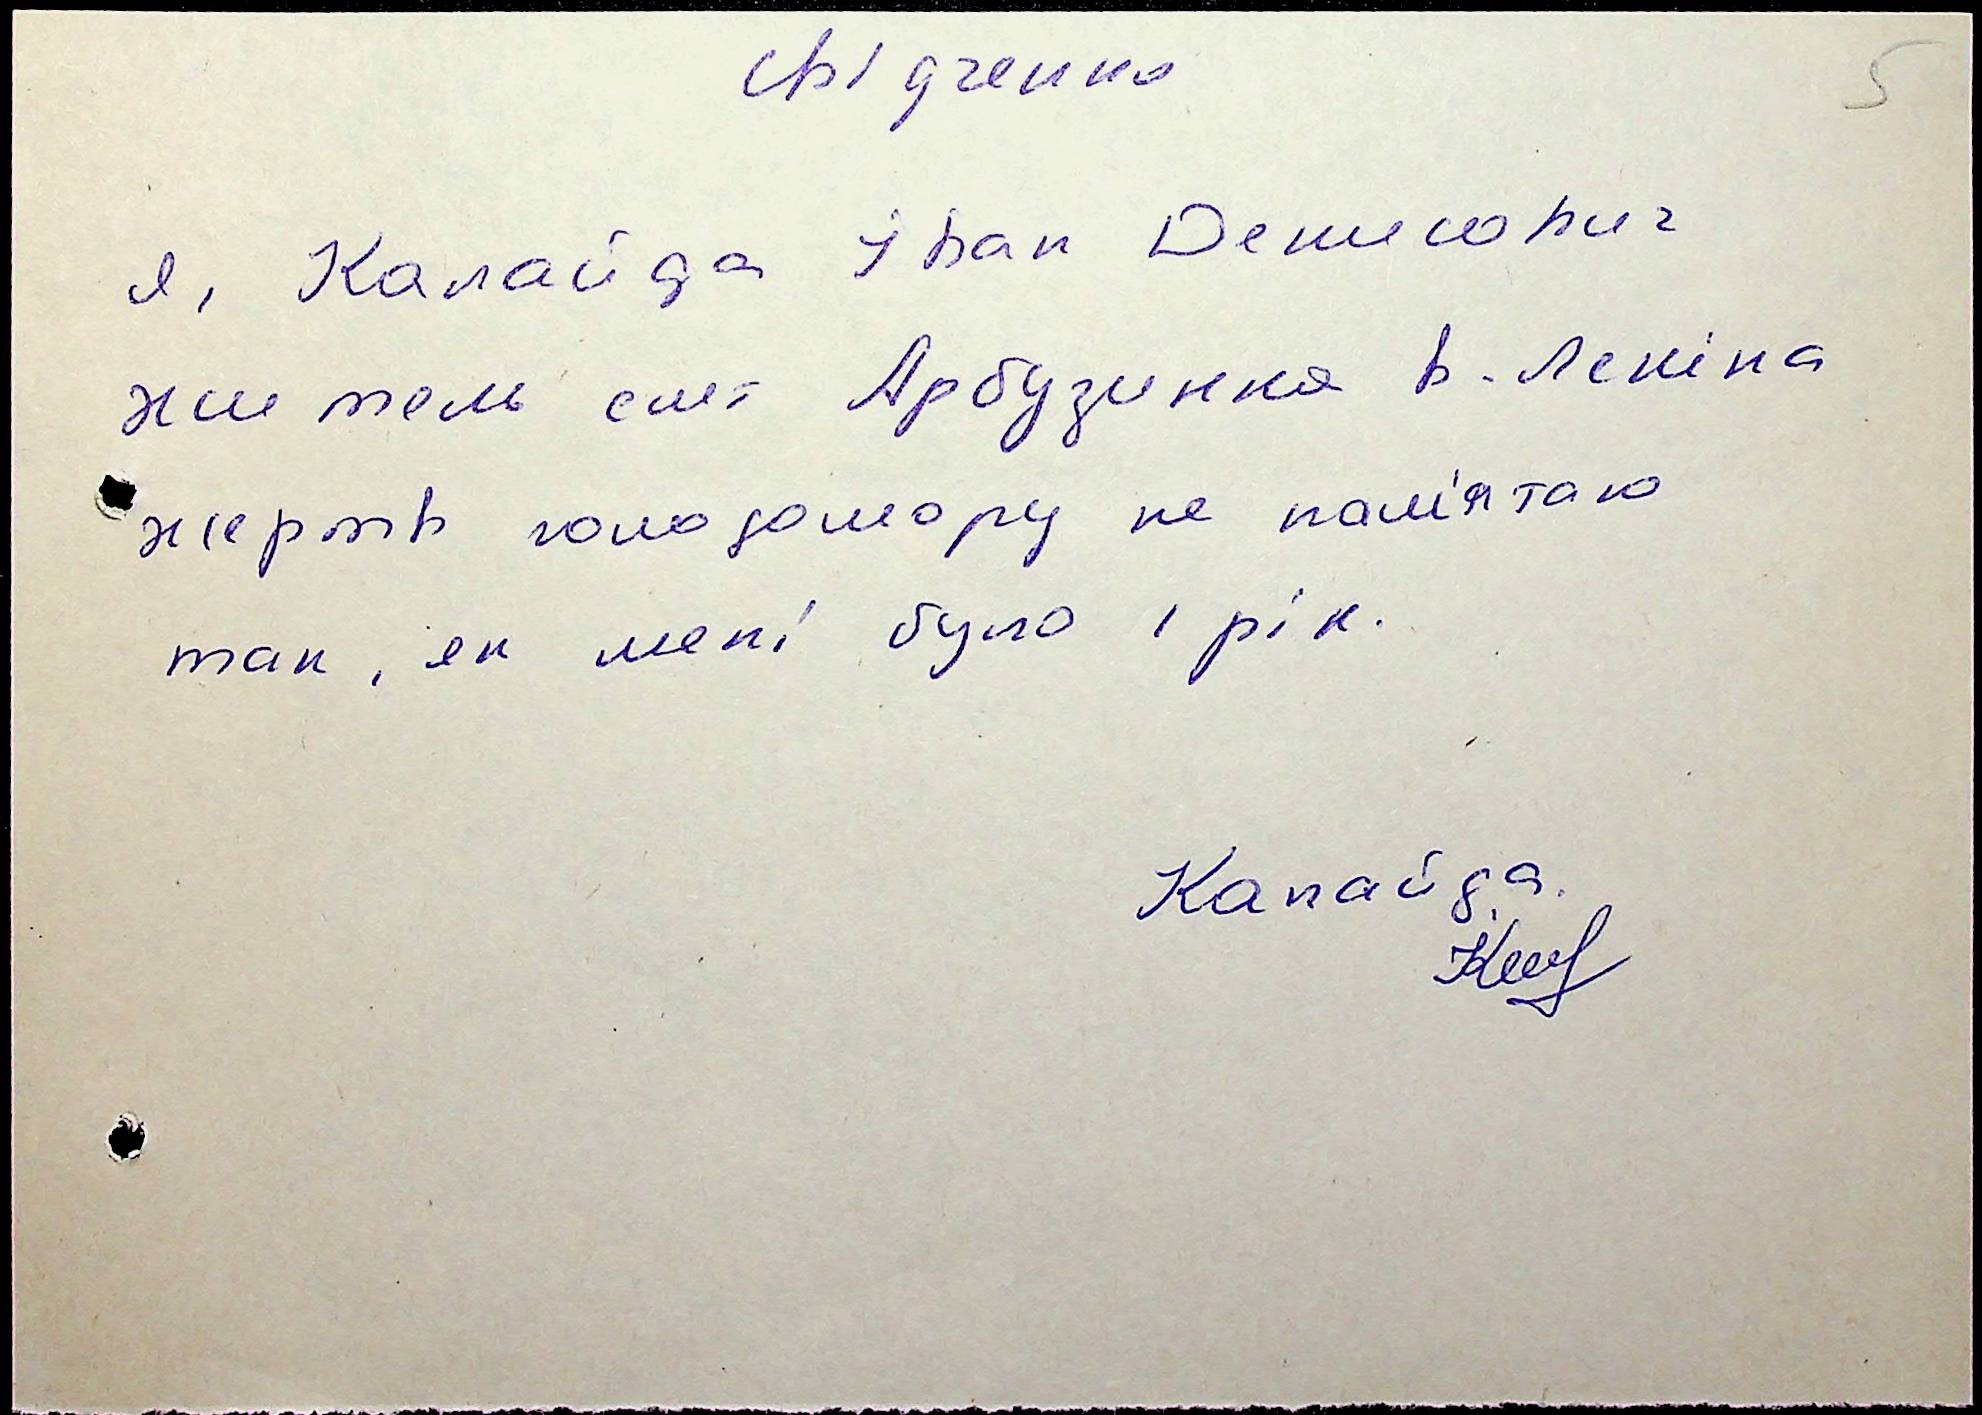 свідченно
5
я, Калайда Іван Денисович
житель смт Арбузинка в. Леніна
жертв голодомору не пам'ятаю
так, як мені було 1 рік.
Калайда.